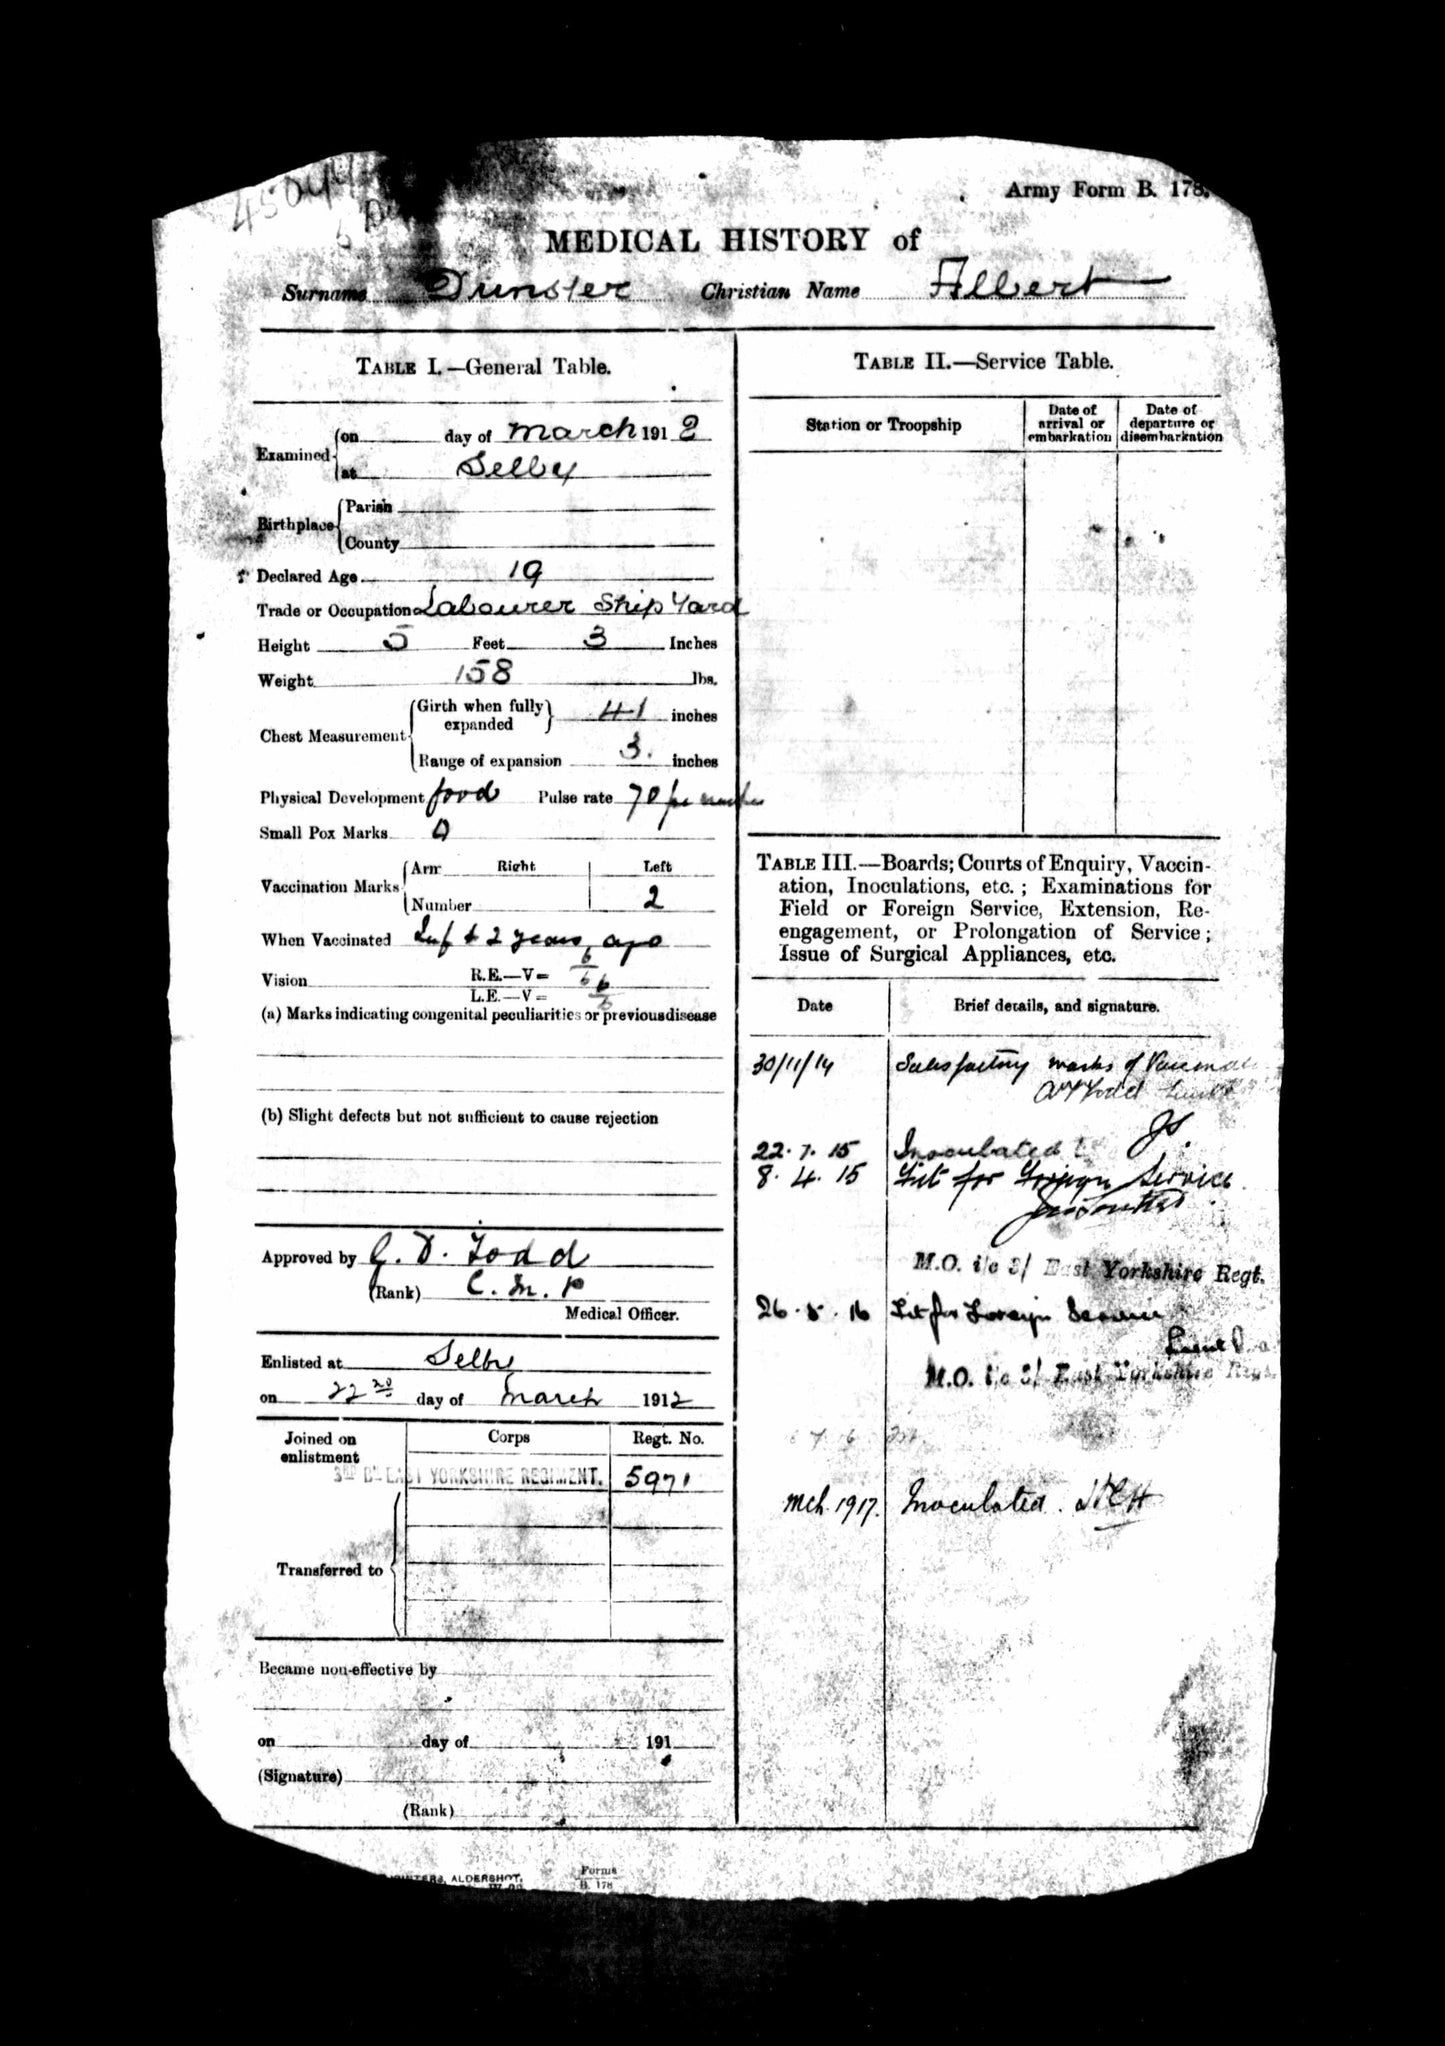 Army Form B. 178.
MEDICAL HISTORY of
Surname Dunster Christian Name Albert
TABLE I.—General Table.
Examined on day of March 1912
at Selby
Birthplace Parish
County
Declared Age 19
Trade or Occupation Labourer Ship Yard
Height 5 Feet 3 Inches
Weight 158 lbs.
Chest Measurement Girth when fully expanded 41 inches
Range of expansion 3. inches
Physical Development good Pulse rate 70 per minute
Small Pox Marks 0
Vaccination Marks Arm Right Left
Number 2
When Vaccinated Inf & 2 years ago
Vision R.E.—V= 6/6
L.E.—V= 6/6
(a) Marks indicating congenital peculiarities or previous disease
(b) Slight defects but not sufficient to cause rejection
Approved by G. D. Todd
(Rank) C. M. P
Medical Officer.
Enlisted at Selby
on 22nd day of March 1912
Joined on enlistment Corps Regt. No.
3RD BN EAST YORKSHIRE REGIMENT. 5971
Transferred to
Became non-effective by
on day of 191
(Signature)
(Rank)
TABLE II.—Service Table.
Station or Troopship
Date of arrival or embarkation
Date of departure or disembarkation
TABLE III.—Boards; Courts of Enquiry, Vaccin-
ation, Inoculations, etc.; Examinations for
Field or Foreign Service, Extension, Re-
engagement, or Prolongation of Service;
Issue of Surgical Appliances, etc.
Date Brief details, and signature.
30/11/14 Satisfactory marks of
Todd
22. 7. 15 Inoculated
8. 4. 15 Fit for Foreign Service.
M.O. i/c 3/ East Yorkshire Regt.
26. 5. 16 Fit for Foreign Service
M.O. i/c 3/ East Yorkshire Regt.
Mch. 1917. Inoculated.
ALDERSHOT.
Forms
B. 178